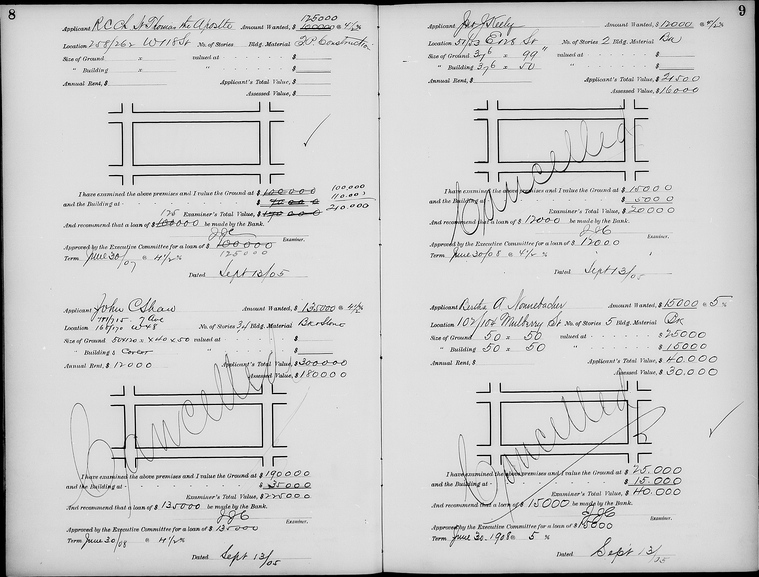 8
Applicant R.C. Ch. St Thomas the Apostle Amount Wanted, $ 125000 100000 @ 4½%
Location 258/262 W 118 St No. of Stories Bldg. Material F.P. Construction
Size of Ground x valued at $
" Building x " $
Annual Rent, $ Applicant's Total Value, $
Assessed Value, $
I have examined the above premises and I value the Ground at $ 100000 100,000
and the Building at $ 90000 110.000
125 Examiner's Total Value, $ 190000 210.000
And recommend that a loan of $ 100000 be made by the Bank.
JJC Examiner.
Approved by the Executive Committee for a loan of $ 100000
125000
Term June 30/07 @ 4½%
Dated Sept 13/05
Applicant John C Shaw Amount Wanted, $ 135000 @ 4½%
711/715 7 Ave
Location 168/170 W 48 No. of Stories 3/4 Bldg. Material Bk & Stone
Size of Ground 50x120 x x40x50 valued at $
" Building $ Cover " $
Annual Rent, $ 12000 Applicant's Total Value, $ 300000
Assessed Value, $ 180000
Cancelled
I have examined the above premises and I value the Ground at $ 190000
and the Building at $ 35000
Examiner's Total Value, $ 225000
And recommend that a loan of $ 135000 be made by the Bank.
JJC Examiner.
Approved by the Executive Committee for a loan of $ 135000
Term June 30/08 @ 4½%
Dated Sept 13/05
9
Applicant Jno J Steely Amount Wanted, $ 12000 @ 4½%
Location 51/53 E 128 St No. of Stories 2 Bldg. Material Bk
Size of Ground 37⁶ x 99" valued at $
" Building 37⁶ x 50 " $
Annual Rent, $ Applicant's Total Value, $ 21500
Assessed Value, $ 16000
Cancelled
I have examined the above premises and I value the Ground at $ 15000
and the Building at $ 5000
Examiner's Total Value, $ 20000
And recommend that a loan of $ 12000 be made by the Bank.
JJC Examiner.
Approved by the Executive Committee for a loan of $ 12000
Term June 30/08 @ 4½%
Dated Sept 13/05
Applicant Bertha A. Nonnebacher Amount Wanted, $ 15000 @ 5%
Location 102/104 Mulberry St No. of Stories 5 Bldg. Material Bk
Size of Ground 50 x 50 valued at $ 25000
" Building 50 x 50 " $ 15000
Annual Rent, $ Applicant's Total Value, $ 40.000
Assessed Value, $ 30.000
Cancelled
I have examined the above premises and I value the Ground at $ 25.000
and the Building at $ 15.000
Examiner's Total Value, $ 40.000
And recommend that a loan of $ 15000 be made by the Bank.
JJC Examiner.
Approved by the Executive Committee for a loan of $ 15000
Term June 30-1908 @ 5%
Dated Sept 13/05